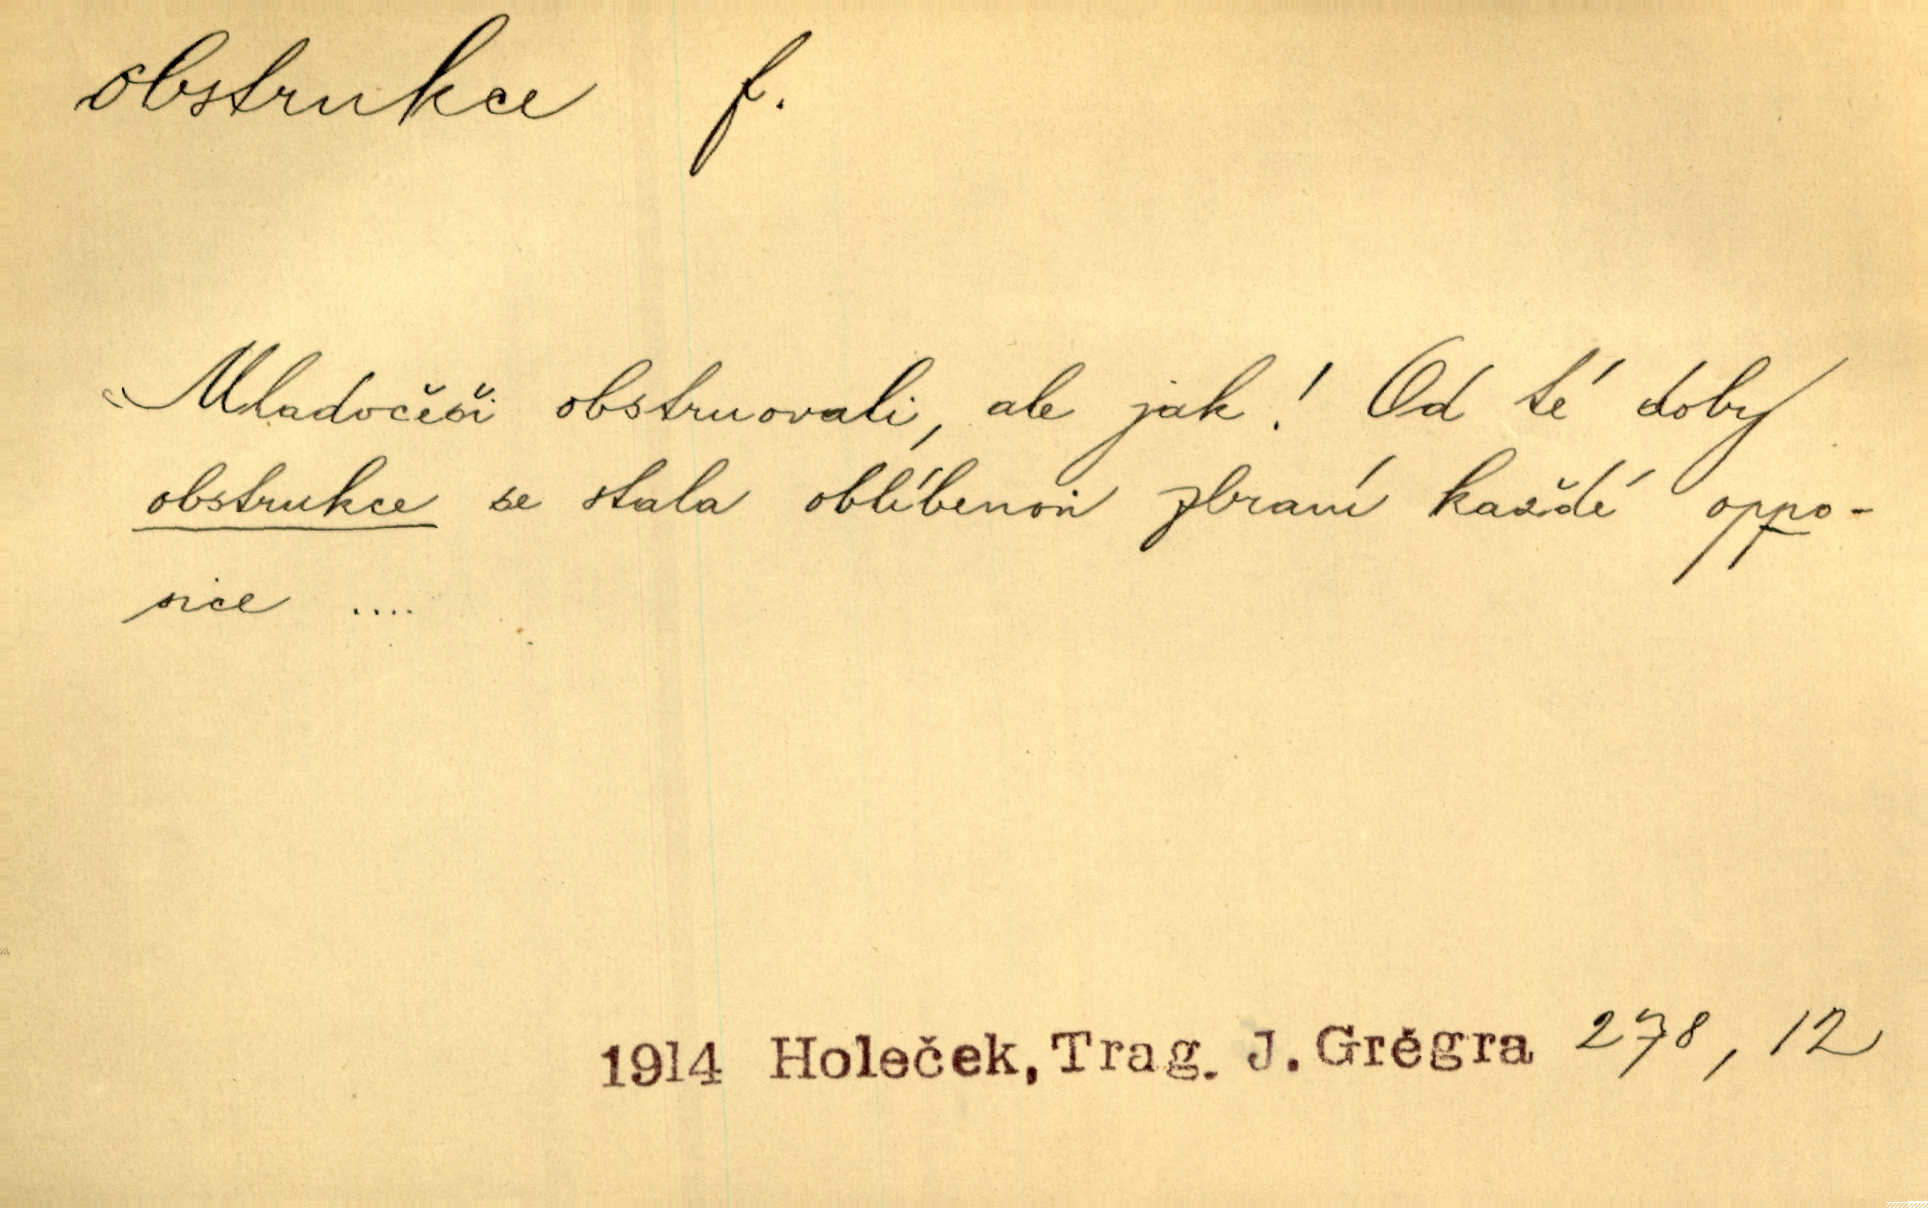 obstrukce f.
Mladočeši obstruovali, ale jak! Od té doby
obstrukce se stala oblíbenou zbraní každé oppo-
sice ....
1914 Holeček, Trag. J. Grégra 278, 12